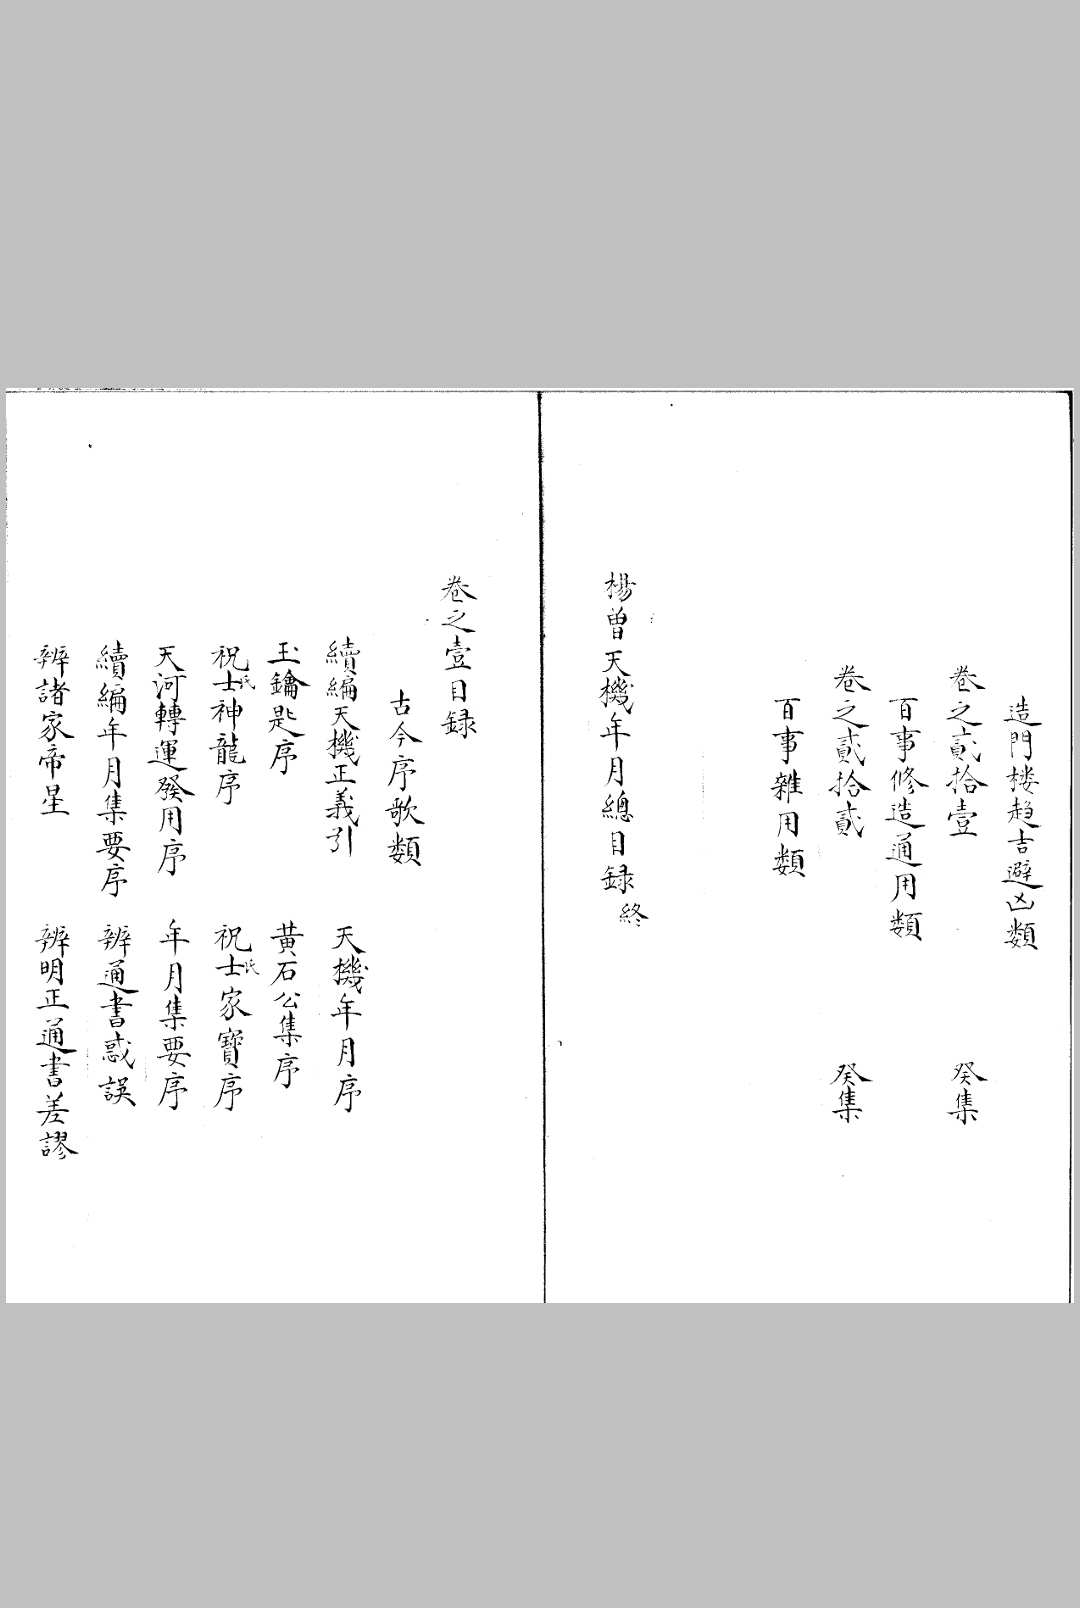 造門楼趋吉避凶類
卷之貳拾壹　癸集
百事修造通用類
卷之貳拾貳　癸集
百事雜用類
楊曾天機年月總目録終
卷之壹目録
古今序歌類
續編天機正義引　天機年月序
玉鑰匙序　黄石公集序
祝士氏神龍序　祝士氏家寶序
天河轉運發用序　年月集要序
續編年月集要序　辨通書惑誤
辨諸家帝星　辨明正通書差謬